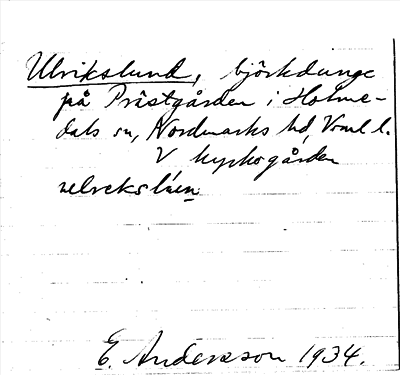 Ulrikslund, björkdunge
på Prästgården i Holme-
dals sn, Nordmarks hd, Vrml l.
V kyrkogården
ulrekslúnn
E. Andersson 1934.